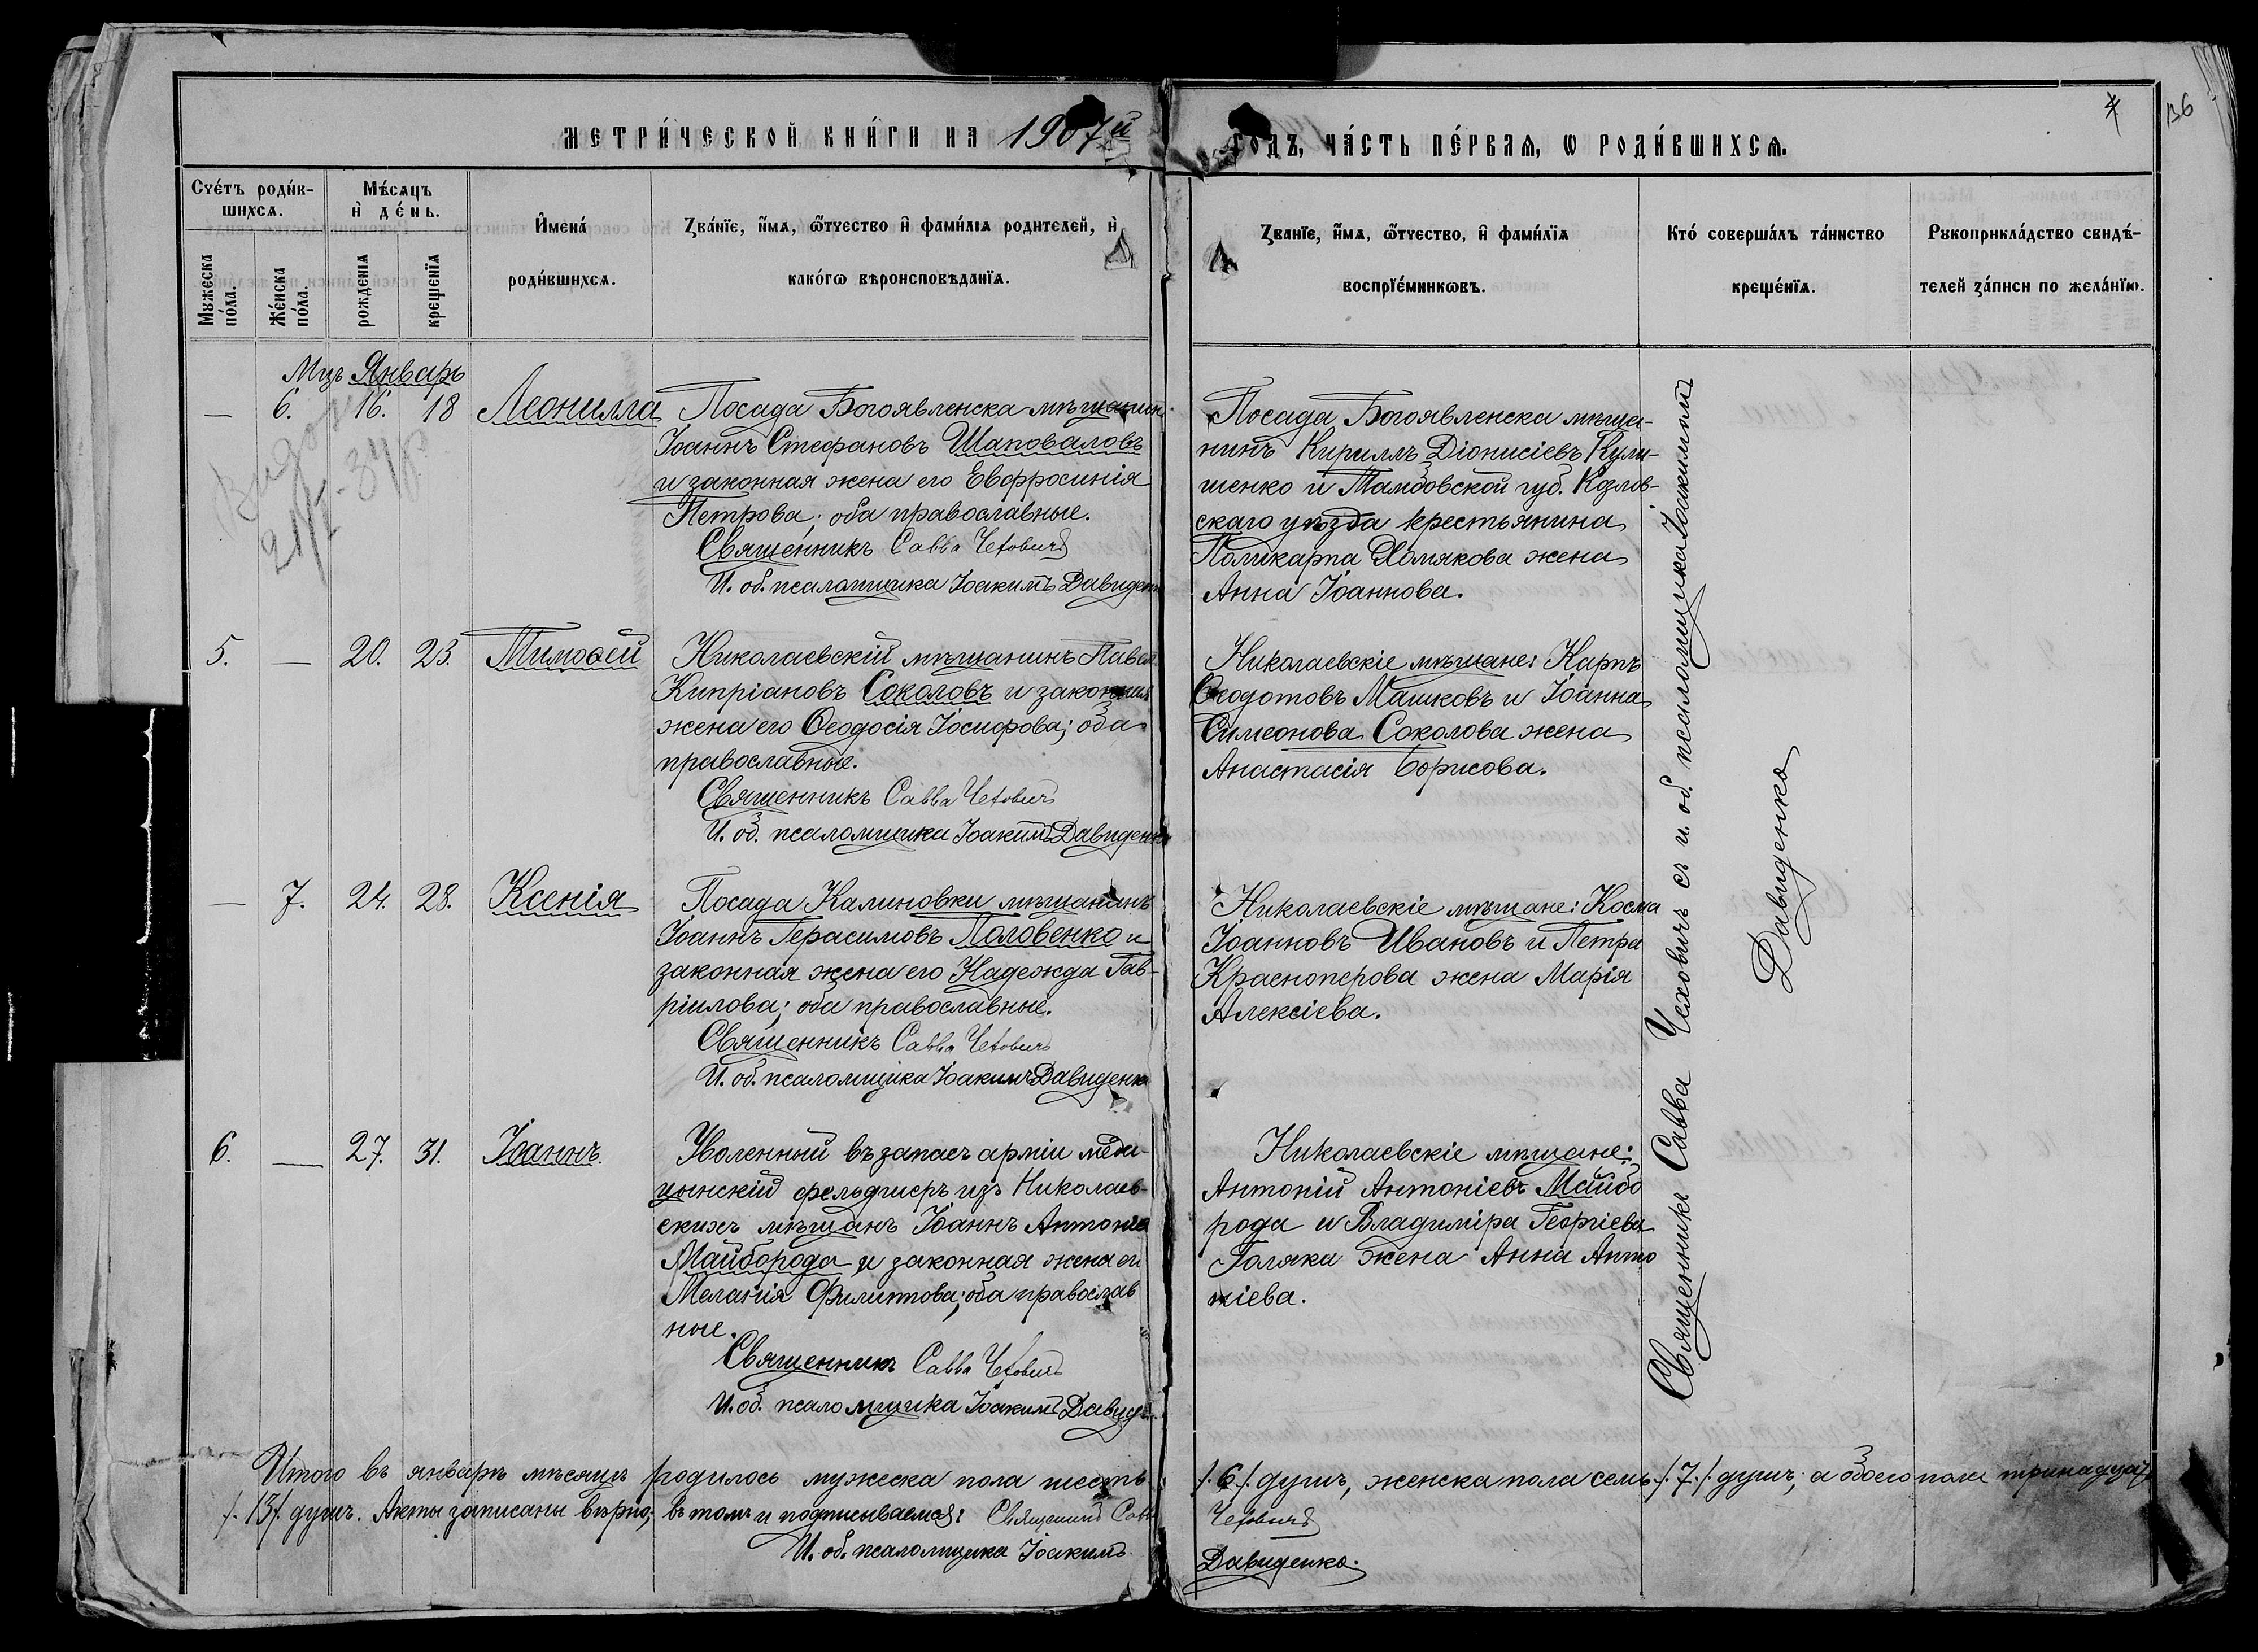 МЕТРИ́ЧЕСКОЙ КНИ́ГИ НА 1907й
ГОДЪ, ЧА́СТЬ ПЕ́РВАѦ, Ѡ РОДИ́ВШИХСѦ.
136
Счéтъ роди́в-
шихсѧ.
Мужеска
по́ла.
Же́нска
по́ла.
Мѣ́сѧцъ
и҆ де́нь.
рожденїѧ
крещенїѧ
И҆мена́
роди́вшихсѧ.
Ꙁва́нїе, и҆́мѧ, ѻ҆́тчество и҆ фами́лїѧ родителей, и҆
како́гѡ вѣроисповѣданїѧ.
Ꙁванїе, и҆́мѧ, ѻ҆́тчество, и҆ фами́лїѧ
воспрїе́мникѡвъ.
Кто́ соверша́лъ та́инство
креще́нїѧ.
Рукоприкла́дство свидѣ́-
телей ꙁа́писи по жела́нїю.
Мцъ Январь
— 6. 16. 18 Леонилла
Посада Богоявленска мѣщанинъ
Іоаннъ Стефановъ Шаповаловъ
и законная жена его Евфросинія
Петрова; оба православные.
Священникъ Савва Чеховичъ
И. об. псаломщика Іоакимъ Давиденк
Посада Богоявленска мѣща-
нинъ Кириллъ Діонисіевъ Кули-
шенко и Тамбовской губ. Козлов-
скаго уѣзда крестьянина
Поликарпа Хомякова жена
Анна Іоаннова.
5. — 20. 23. Тимоѳей
Николаевскій мѣщанинъ Павел
Кипріановъ Соколовъ и законная
жена его Ѳеодосія Іосифова; оба
православные.
Священникъ Савва Чеховичъ
И. об. псаломщика Іоакимъ Давиденко
Николаевскіе мѣщане: Карпъ
Ѳеодотовъ Машковъ и Іоанна
Симеонова Соколова жена
Анастасія Борисова.
— 7. 24. 28. Ксенія
Посада Калиновки мѣщанинъ
Іоаннъ Герасимовъ Половенко и
законная жена его Надежда Гав-
ріилова; оба православные.
Священникъ Савва Чеховичъ
И. об. псаломщика Іоакимъ Давиденк
Николаевскіе мѣщане: Косма
Іоанновъ Ивановъ и Петра
Красноперова жена Марія
Алексіева.
6. — 27. 31. Іоаннъ.
Уволенный въ запасъ арміи меди-
цынскій фельдшеръ изъ Николаев-
скихъ мѣщанъ Іоаннъ Антоніев
Майборода и законная жена его
Меланія Филиппова; оба православ
ные.
Священникъ Савва Чеховичъ
И. об. псаломщика Іоакимъ Давид
Николаевскіе мѣщане:
Антоній Антоніевъ Майбо
рода и Владиміра Георгіева
Голяка жена Анна Анто
ніева.
Священникъ Савва Чеховичъ съ и. об. псаломщика Іоакимомъ
Давиденко
Итого въ январѣ мѣсяцѣ родилось мужеска пола шесть /.6./ душъ, женска пола семь /.7./ душъ; а обоего пола тринадцать
/.13/. душъ. Акты записаны вѣрно; въ томъ и подписываемся: Священникъ Савва Чеховичъ
И. об. псаломщика Іоакимъ Давиденко.